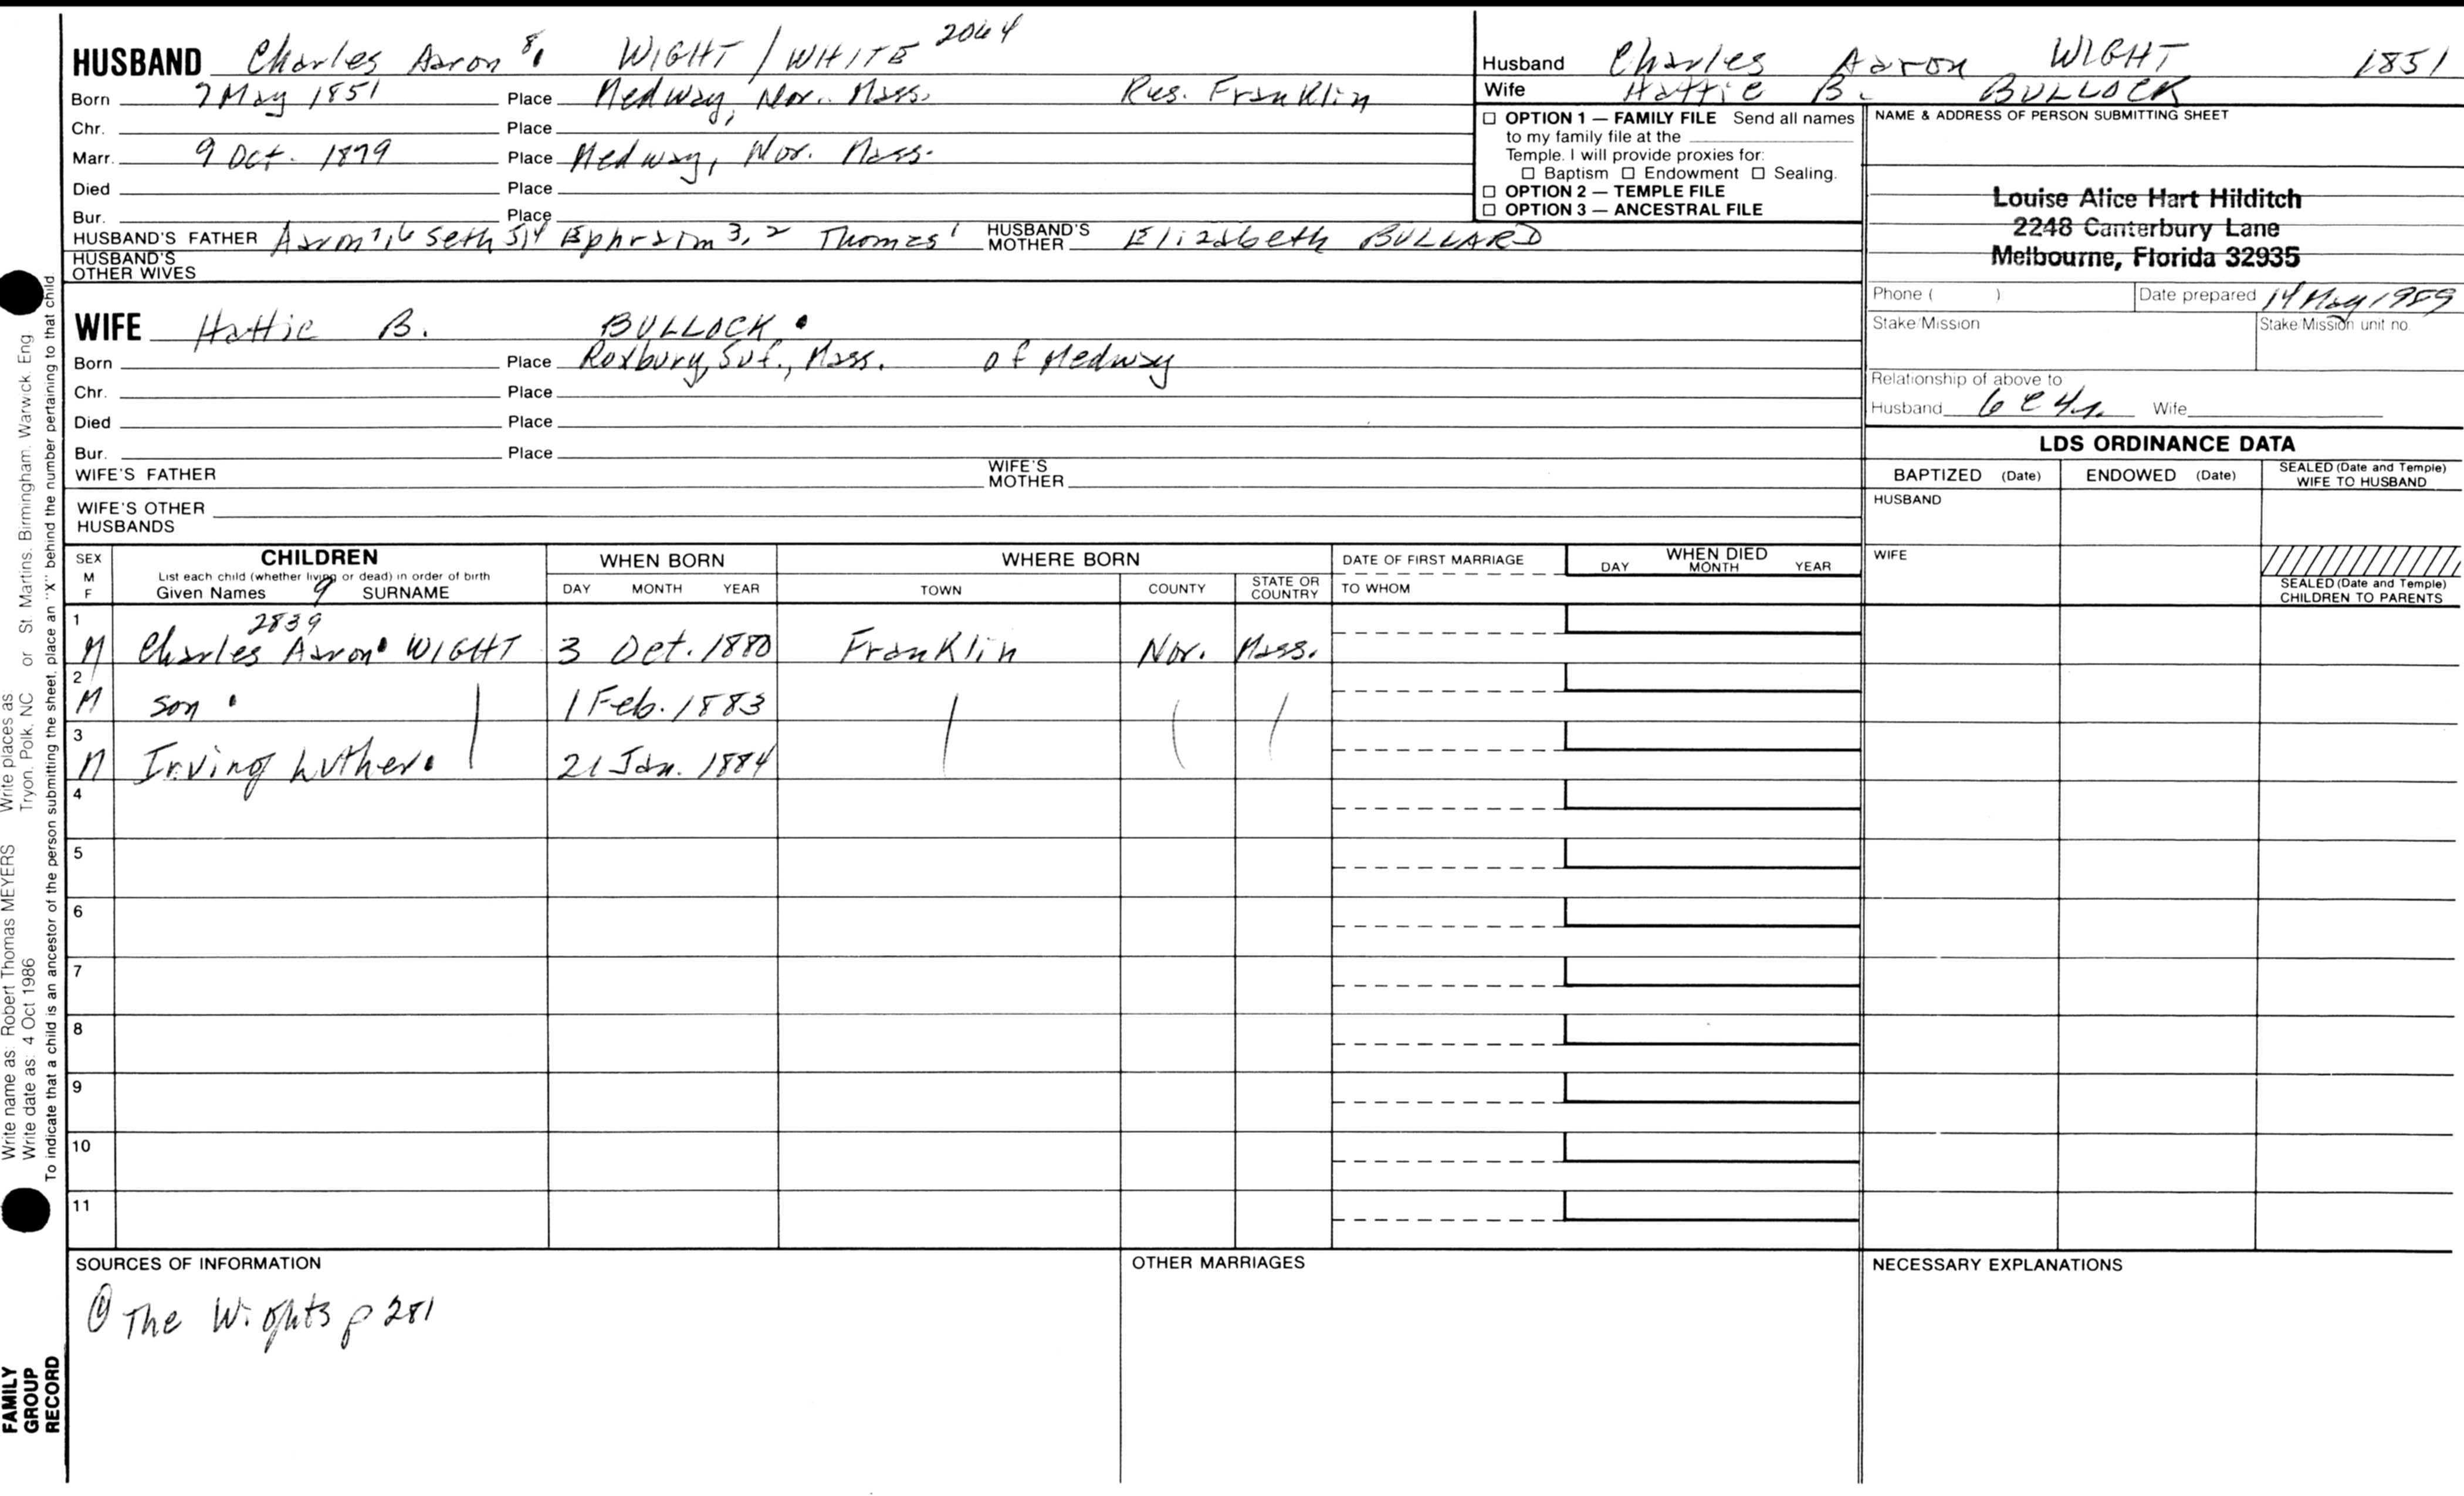 HUSBAND Charles Aaron 8. WIGHT / WHITE 2044
Born 7 May 1851 Place Medway, Nor. Mass. Res. Franklin
Chr. Place
Marr. 9 Oct. 1879 Place Medway, Nor. Mass.
Died Place
Bur. Place
HUSBAND'S FATHER Aaron 7,6 Seth 5,4 Ephraim 3,2 Thomas 1 HUSBAND'S MOTHER Elizabeth BULLARD
HUSBAND'S OTHER WIVES
Husband Charles Aaron WIGHT 1851
Wife Hattie B. BULLOCK
☐ OPTION 1 — FAMILY FILE Send all names
to my family file at the
Temple. I will provide proxies for:
☐ Baptism ☐ Endowment ☐ Sealing.
☐ OPTION 2 — TEMPLE FILE
☐ OPTION 3 — ANCESTRAL FILE
NAME & ADDRESS OF PERSON SUBMITTING SHEET
Louise Alice Hart Hilditch
2248 Canterbury Lane
Melbourne, Florida 32935
Phone ( ) Date prepared 14 May 1989
Stake/Mission Stake/Mission unit no.
Relationship of above to
Husband 6c4r. Wife
WIFE Hattie B. BULLOCK
Born Place Roxbury, Suf., Mass. of Medway
Chr. Place
Died Place
Bur. Place
WIFE'S FATHER WIFE'S MOTHER
WIFE'S OTHER HUSBANDS
LDS ORDINANCE DATA
BAPTIZED (Date) ENDOWED (Date) SEALED (Date and Temple) WIFE TO HUSBAND
HUSBAND
WIFE
SEALED (Date and Temple) CHILDREN TO PARENTS
SEX M F
CHILDREN
List each child (whether living or dead) in order of birth
Given Names 9 SURNAME
WHEN BORN
DAY MONTH YEAR
WHERE BORN
TOWN COUNTY STATE OR COUNTRY
DATE OF FIRST MARRIAGE
TO WHOM
WHEN DIED
DAY MONTH YEAR
2839
1 M Charles Aaron WIGHT 3 Oct. 1880 Franklin Nor. Mass.
2 M son 1 Feb. 1883
3 M Irving Luther 21 Jan. 1884
4
5
6
7
8
9
10
11
SOURCES OF INFORMATION
① The Wights p 281
OTHER MARRIAGES
NECESSARY EXPLANATIONS
Write name as: Robert Thomas MEYERS Write places as Tryon, Polk, NC or St Martins, Birmingham, Warwick, Eng
Write date as: 4 Oct 1986
To indicate that a child is an ancestor of the person submitting the sheet, place an "X" behind the number pertaining to that child
FAMILY
GROUP
RECORD